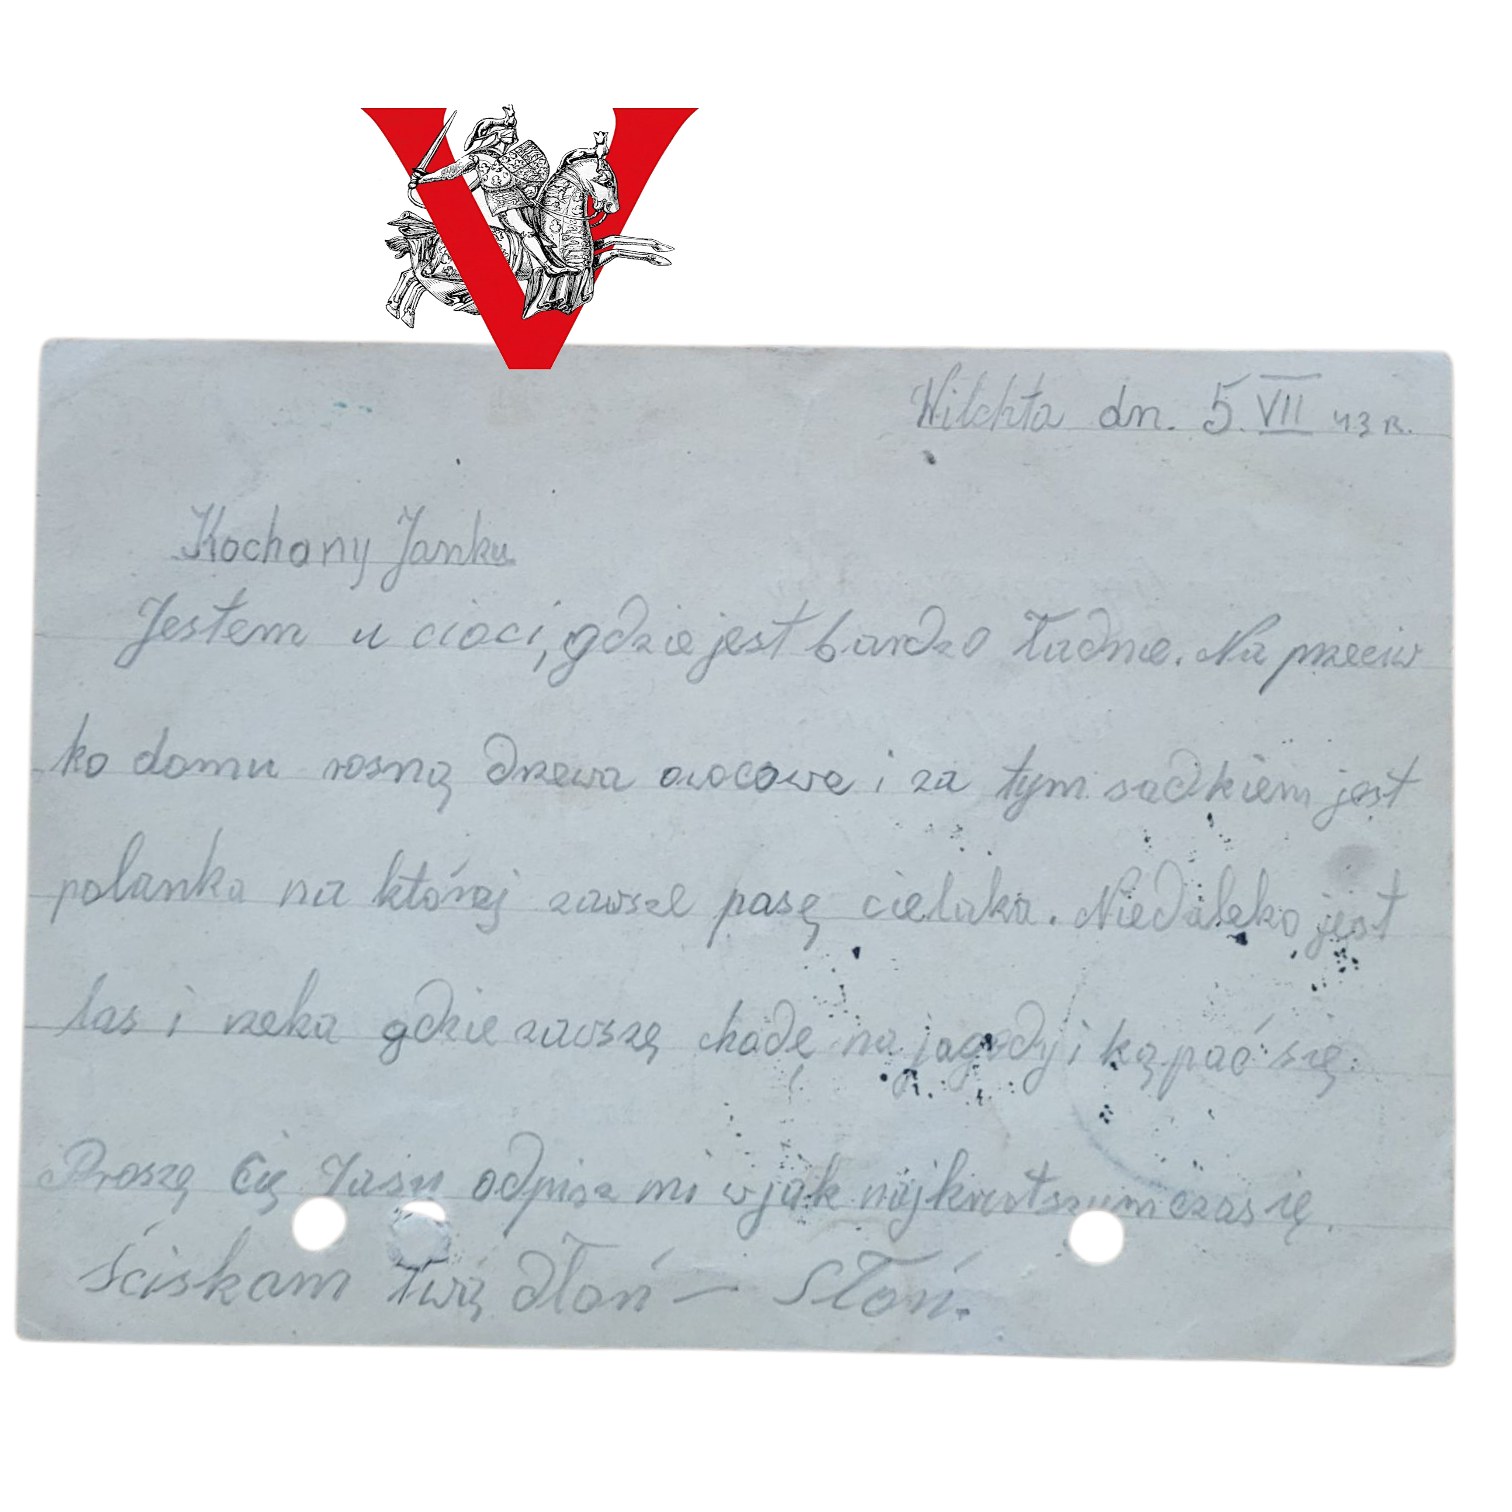 V
Wilchta dn. 5. VII 43 r.
Kochany Janku
Jestem u cioci, gdzie jest bardzo ładnie. Na przeciw
ko domu rosną drzewa owocowe i za tym sadkiem jest
polanka na której zawsze pasę cielaka. Niedaleko jest
las i rzeka gdzie zawszę chodę na jagody i kąpać się.
Proszę Cię Jasiu odpisz mi w jak najkrutszym czasię.
Ściskam Twą dłoń — Słoń.